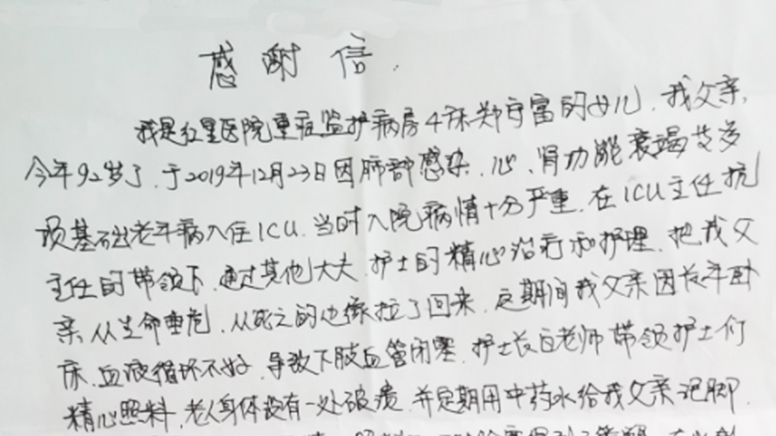 感谢信.
我是红星医院重症监护病房4床郑守富的女儿.我父亲,
今年92岁了,于2019年12月23日因肺部感染.心、肾功能衰竭等多
项基础老年病入住ICU.当时入院病情十分严重.在ICU主任抗
主任的带领下,通过其他大夫,护士的精心治疗和护理.把我父
亲从生命垂危,从死亡的边缘拉了回来.这期间我父亲因长年卧
床.血液循环不好.导致下肢血管闭塞.护士长白老师带领护士们
精心照料,老人身体没有一处破溃.并定期用中药水给我父亲泡脚.